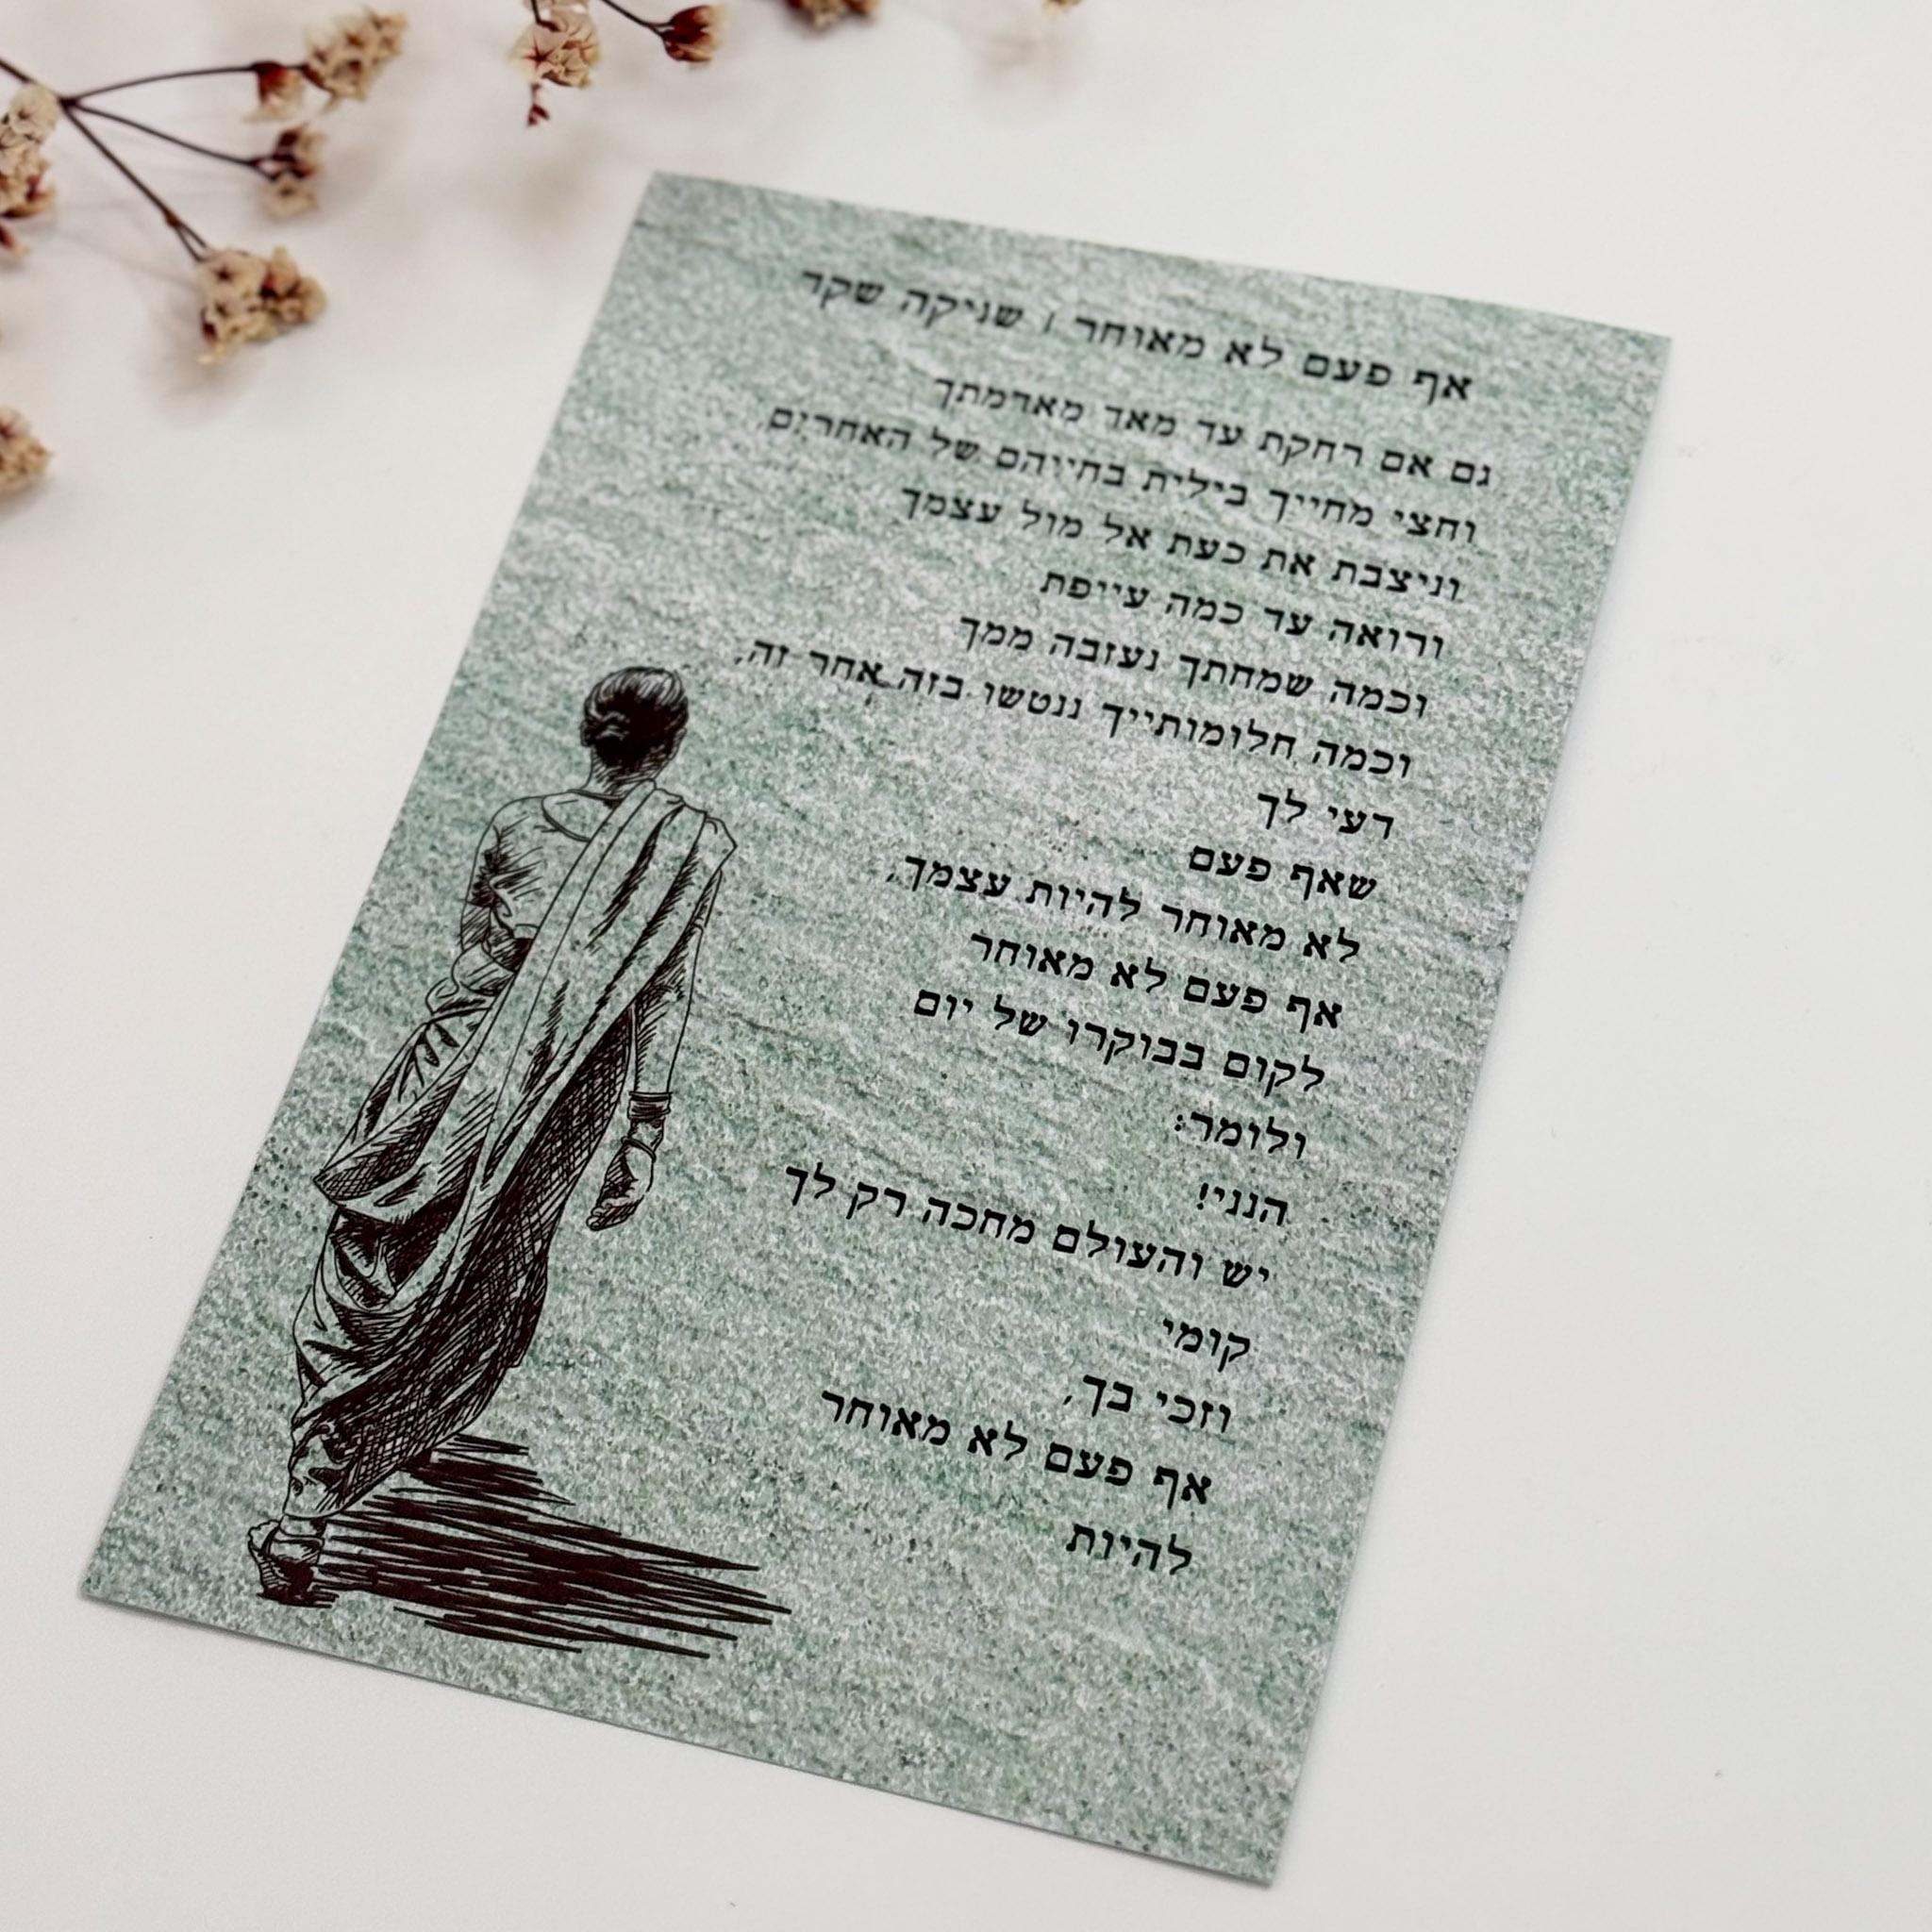 אף פעם לא מאוחר | שניקה שקר
גם אם רחקת עד מאד מאדמתך
וחצי מחייך בילית בחייהם של האחרים
וניצבת את כעת אל מול עצמך
ורואה עד כמה עייפת
וכמה שמחתך נעזבה ממך
וכמה חלומותייך ננטשו בזה אחר זה,
דעי לך
שאף פעם
לא מאוחר להיות עצמך,
אף פעם לא מאוחר
לקום בבוקרו של יום
ולומר:
הנני!
יש והעולם מחכה רק לך
קומי
וזכי בך,
אף פעם לא מאוחר
להיות